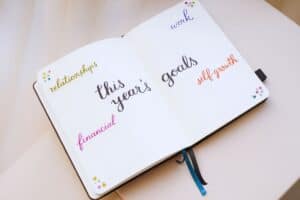 relationships
work
this year's
goals
financial
self growth